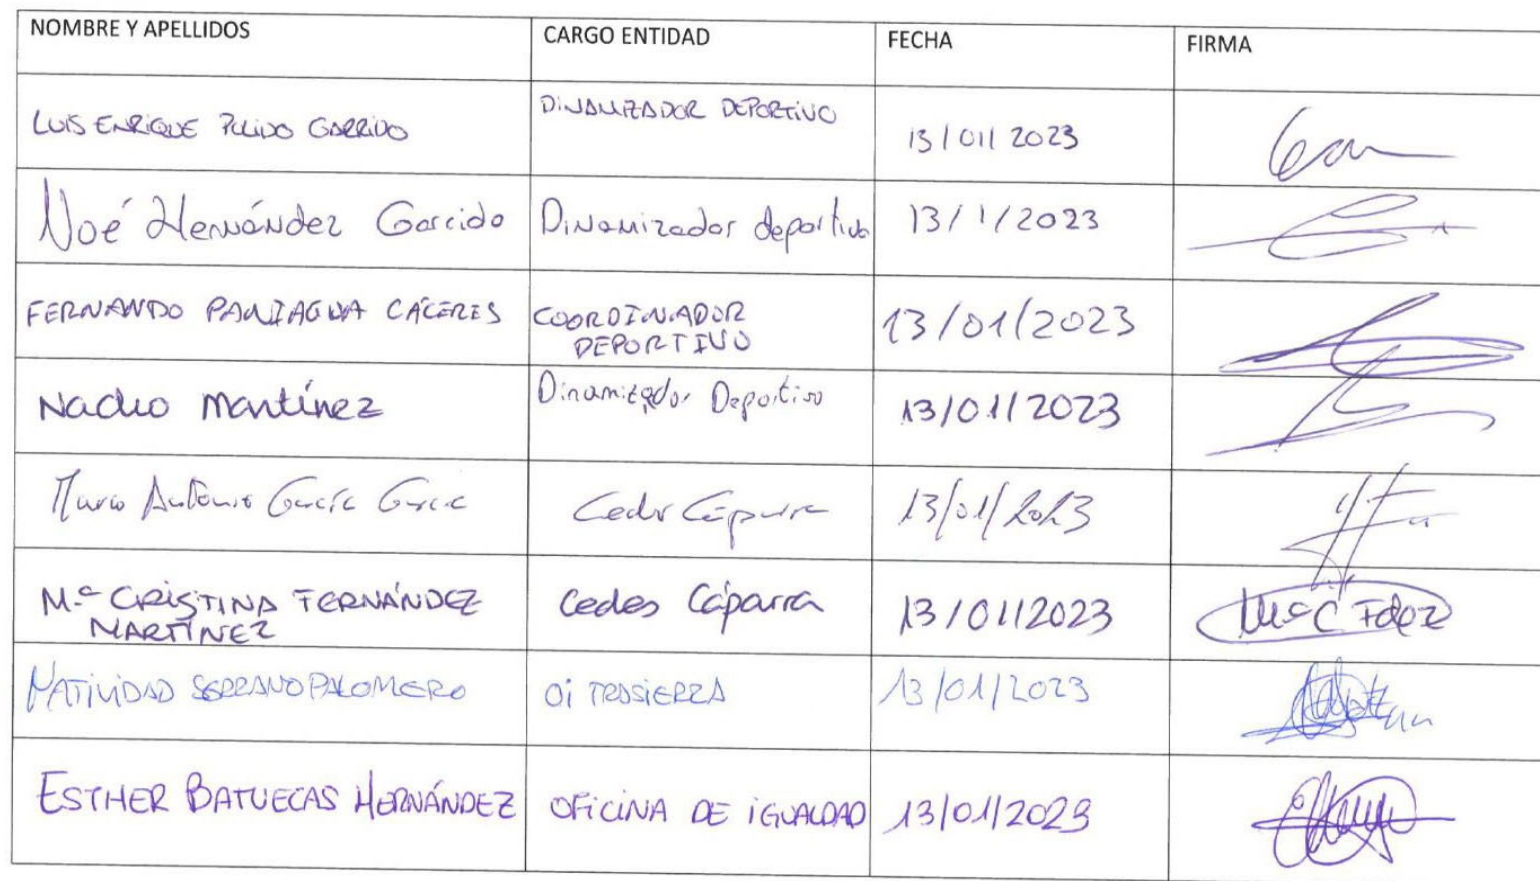 NOMBRE Y APELLIDOS CARGO ENTIDAD FECHA FIRMA
LUIS ENRIQUE PULIDO GARRIDO DINAMIZADOR DEPORTIVO 13/01/2023
Noé Hernández Garrido Dinamizador deportivo 13/1/2023
FERNANDO PANIAGUA CÁCERES COORDINADOR 13/01/2023
DEPORTIVO
Nacho Martínez Dinamizador Deportivo 13/01/2023
Antonio García García Ceder Cáparra 13/01/2023
M.ª CRISTINA FERNÁNDEZ Ceder Cáparra 13/01/2023 Mª C Fdez
MARTÍNEZ
NATIVIDAD SERRANO PALOMERO Oi TRASIERRA 13/01/2023
ESTHER BATUECAS HERNÁNDEZ OFICINA DE IGUALDAD 13/01/2023